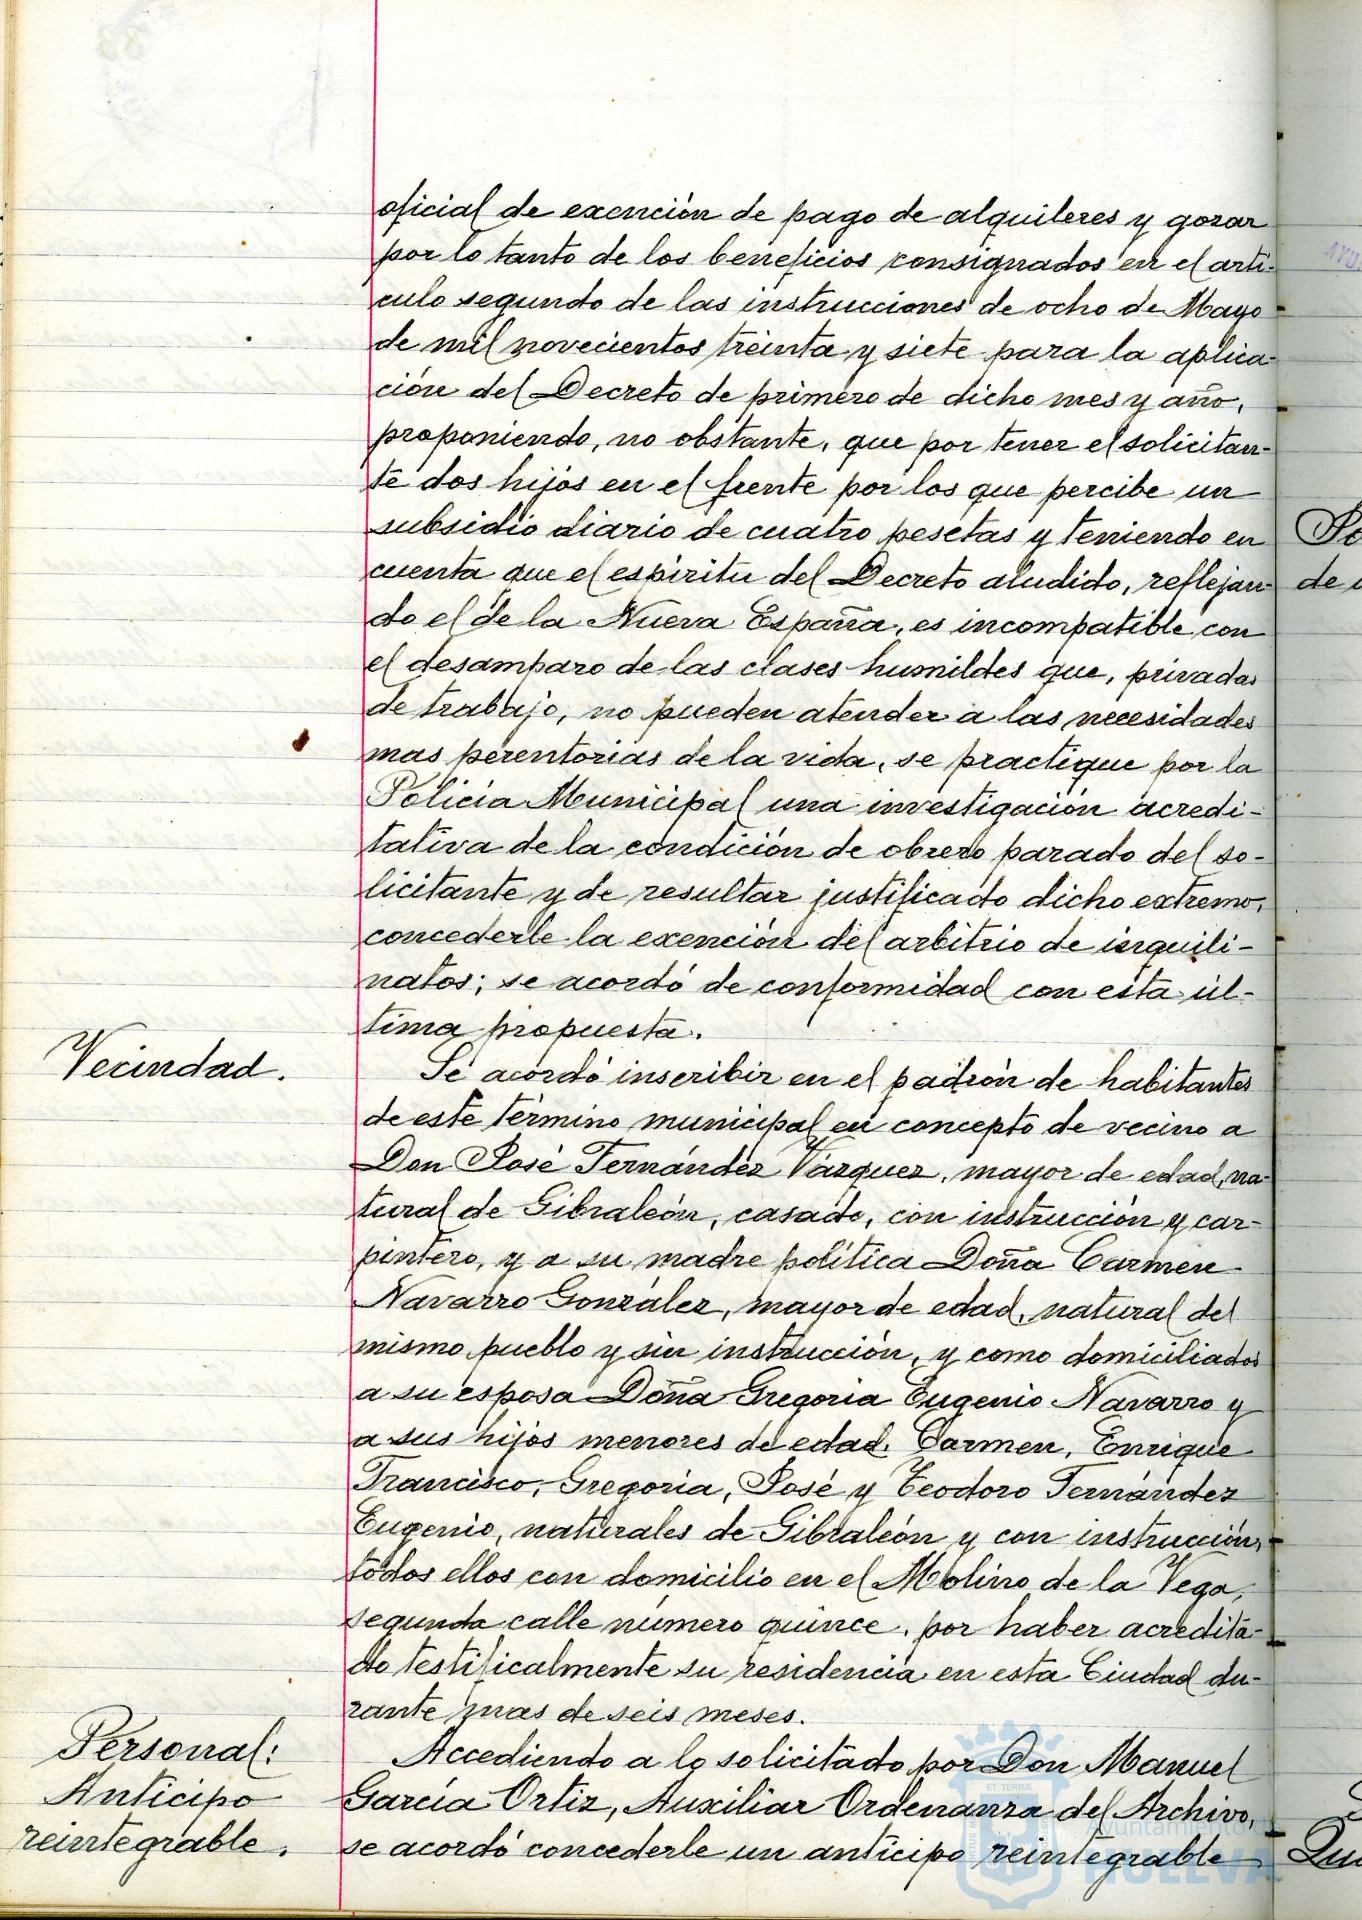 oficial de exención de pago de alquileres y gozar
por lo tanto de los beneficios consignados en el artí-
culo segundo de las instrucciones de ocho de Mayo
de mil novecientos treinta y siete para la aplica-
ción del Decreto de primero de dicho mes y año,
proponiendo, no obstante, que por tener el solicitan-
te dos hijos en el frente por los que percibe un
subsidio diario de cuatro pesetas y teniendo en
cuenta que el espíritu del Decreto aludido, reflejan-
do el de la Nueva España, es incompatible con
el desamparo de las clases humildes que, privadas
de trabajo, no pueden atender a las necesidades
mas perentorias de la vida, se practique por la
Policía Municipal una investigación acredi-
tativa de la condición de obrero parado del so-
licitante y de resultar justificado dicho extremo,
concederle la exención del arbitrio de inquili-
natos; se acordó de conformidad con esta úl-
tima propuesta.
Vecindad.
Se acordó inscribir en el padrón de habitantes
de este término municipal en concepto de vecino a
Don José Fernández Vázquez, mayor de edad, na-
tural de Gibraleón, casado, con instrucción y car-
pintero, y a su madre política Doña Carmen
Navarro González, mayor de edad, natural del
mismo pueblo y sin instrucción, y como domiciliados
a su esposa Doña Gregoria Eugenio Navarro y
a sus hijos menores de edad, Carmen, Enrique
Francisco, Gregoria, José y Teodoro Fernández
Eugenio, naturales de Gibraleón y con instrucción,
todos ellos con domicilio en el Molino de la Vega,
segunda calle número quince, por haber acredita-
do testificalmente su residencia en esta Ciudad du-
rante mas de seis meses.
Personal:
Anticipo
reintegrable.
Accediendo a lo solicitado por Don Manuel
García Ortiz, Auxiliar Ordenanza del Archivo,
se acordó concederle un anticipo reintegrable
Ayuntamiento de
HUELVA
de